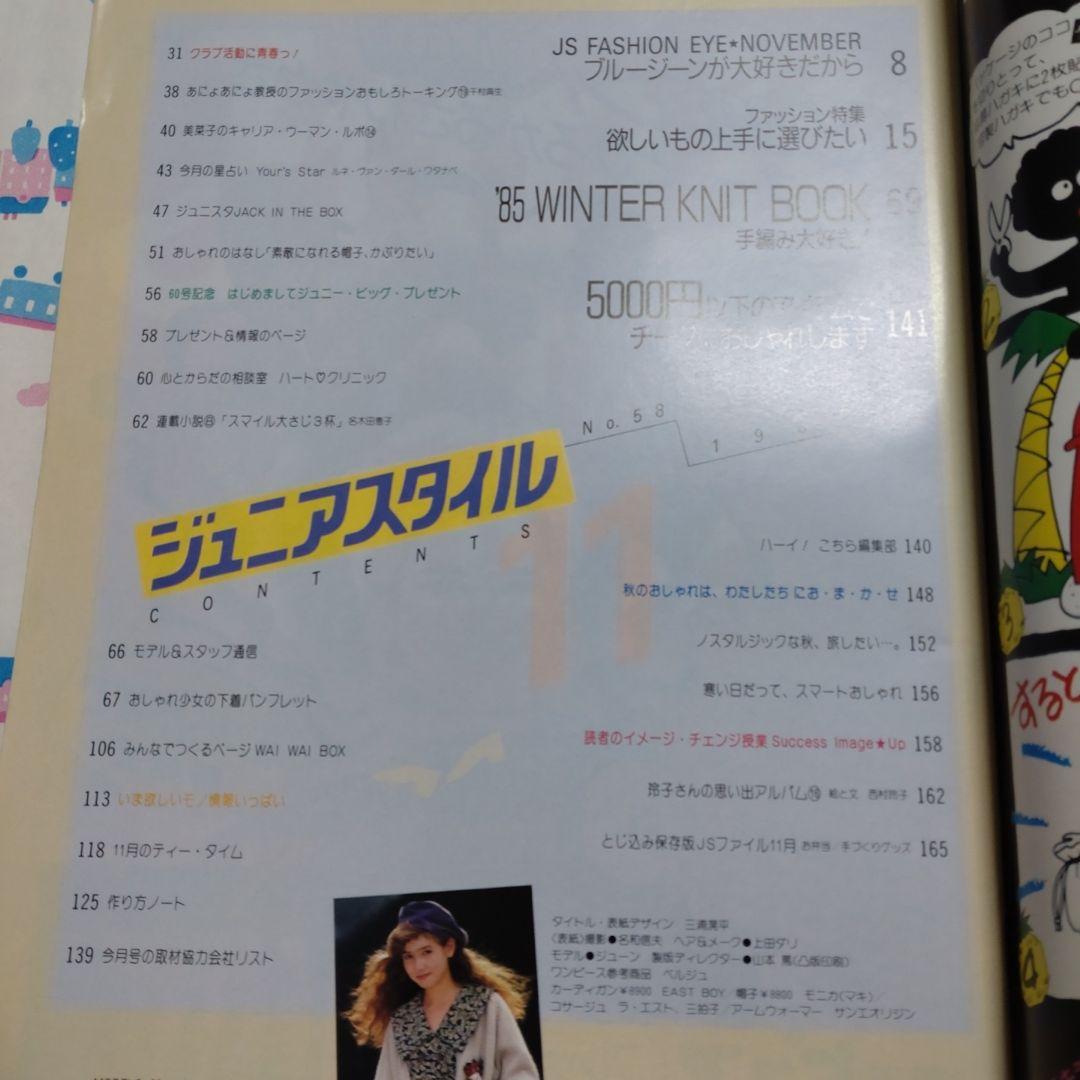 31 クラブ活動に青春っ!
38 あにょあにょ教授のファッションおもしろトーキング⑲
40 美菜子のキャリア・ウーマン・ルポ⑭
43 今月の星占い Your's Star ルネ・ヴァン・ダール・ワタナベ
47 ジュニスタJACK IN THE BOX
51 おしゃれのはなし「素敵になれる帽子、かぶりたい」
56 60号記念 はじめましてジュニー・ビッグ・プレゼント
58 プレゼント&情報のページ
60 心とからだの相談室 ハート♡クリニック
62 連載小説⑧「スマイル大さじ3杯」 名木田恵子
JS FASHION EYE★NOVEMBER
ブルージーンが大好きだから 8
ファッション特集
欲しいもの上手に選びたい 15
'85 WINTER KNIT BOOK 69
手編み大好き!
5000円以下の
おしゃれします 141
No. 58
198
ジュニアスタイル
11
CONTENTS
66 モデル&スタッフ通信
67 おしゃれ少女の下着パンフレット
106 みんなでつくるページ WAI WAI BOX
113 いま欲しいモノ情報いっぱい
118 11月のティー・タイム
125 作り方ノート
139 今月号の取材協力会社リスト
ハーイ! こちら編集部 140
秋のおしゃれは、わたしたちにお・ま・か・せ 148
ノスタルジックな秋、旅したい…。 152
寒い日だって、スマートおしゃれ 156
読者のイメージ・チェンジ授業 Success Image★Up 158
玲子さんの思い出アルバム⑱ 絵と文 西村玲子 162
とじ込み保存版JSファイル11月 お弁当/手づくりグッズ 165
タイトル・表紙デザイン
〈表紙〉撮影●名和信夫 ヘア&メーク●上田ダリ
モデル●ジューン 製版ディレクター●山本 (凸版印刷)
ワンピース参考商品 ベルジュ
カーディガン¥8900 EAST BOY/帽子¥8800 モニカ(マキ)/
コサージュ ラ・エスト、三拍子/アームウォーマー サンエオリジン
ココ
とって、
ハガキに2枚
製ハガキでも
2
3
すると
4